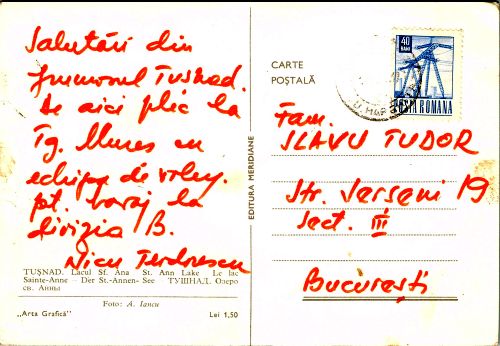 Salutări din
frumosul Tușnad.
De aici plec la
Tg. Mureș cu
echipa de voley.
pt. baraj la
divizia B.
Nicu
TUȘNAD. Lacul Sf. Ana St. Ann Lake Le lac
Sainte-Anne — Der St.-Annen- See — ТУШНАД. Озеро
св. Анны
Foto: A. Iancu
„Arta Grafică" Lei 1,50
EDITURA MERIDIANE
CARTE
POȘTALĂ
40
BANI
POSTA ROMANA
Fam.
SLAVU TUDOR
Str. 19
Sect. III
București